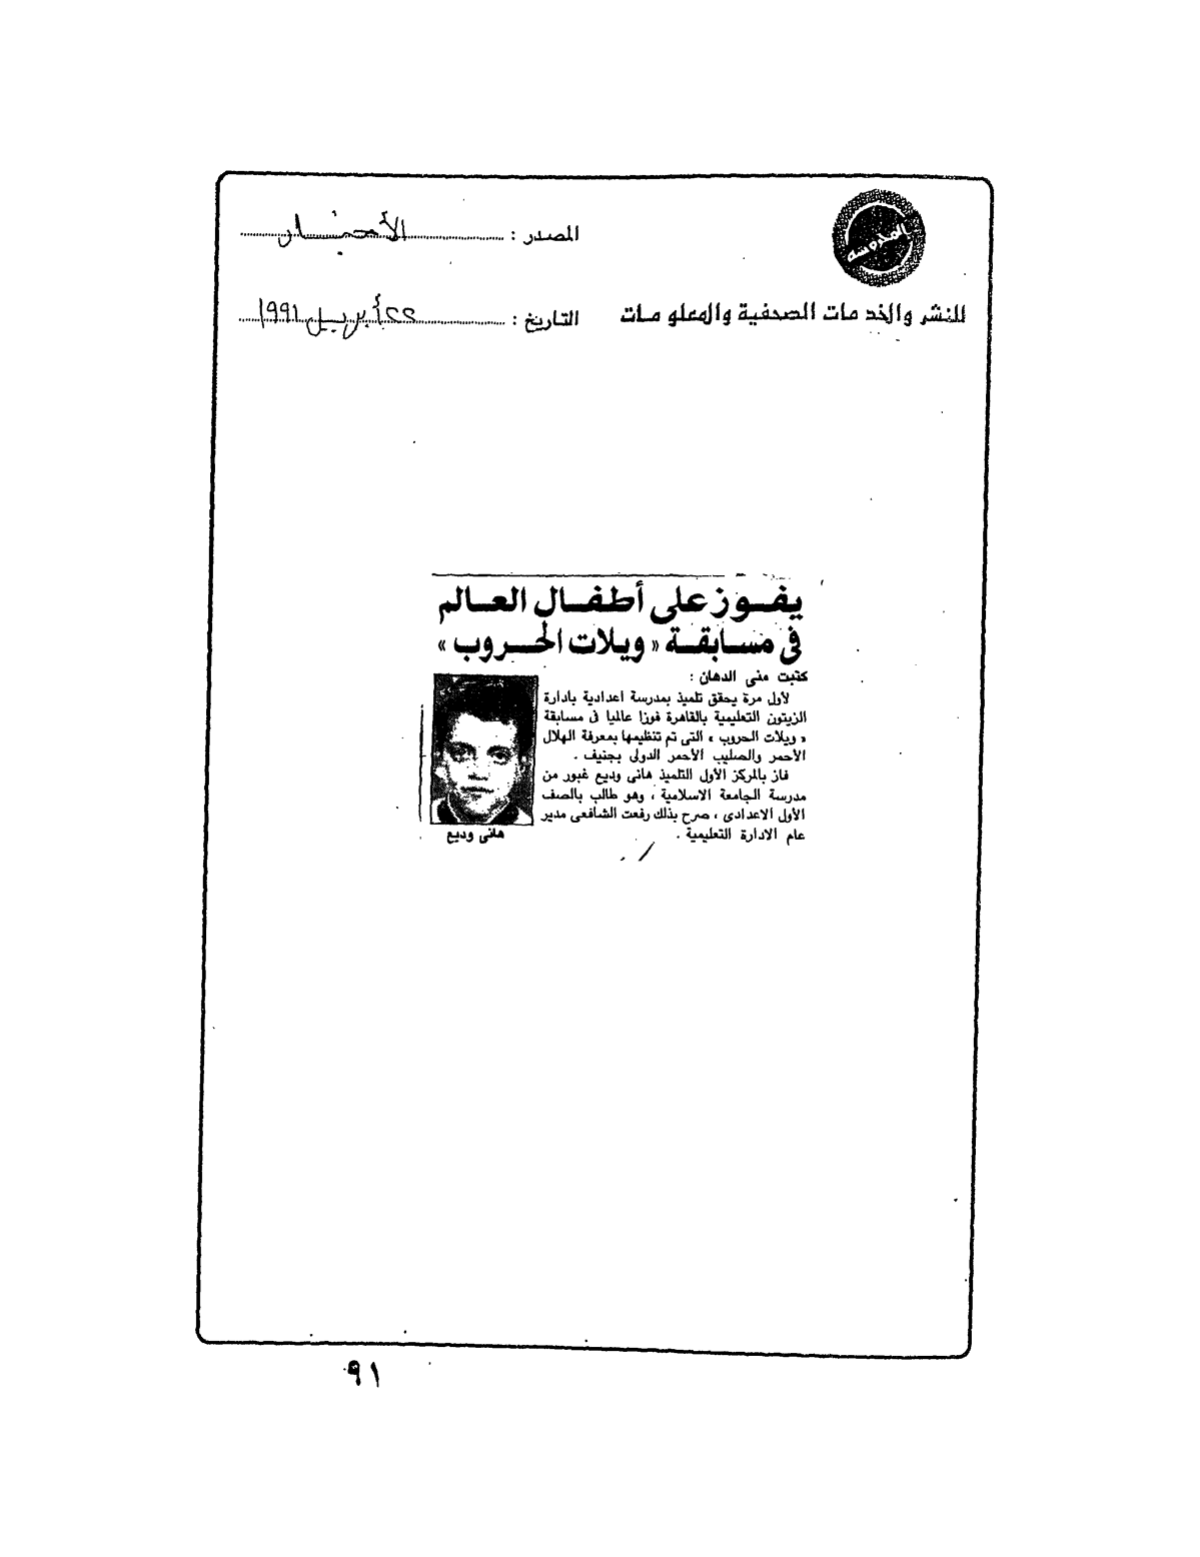 المصدر : الأخبار
للنشر والخدمات الصحفية والمعلومات
التاريخ : ٢٢ أبريل ١٩٩١
يفوز على أطفال العالم
فى مسابقة « ويلات الحروب »
كتبت منى الدهان :
لأول مرة يحقق تلميذ بمدرسة اعدادية بادارة
الزيتون التعليمية بالقاهرة فوزا عالميا فى مسابقة
« ويلات الحروب » التى تم تنظيمها بمعرفة الهلال
الأحمر والصليب الأحمر الدولى بجنيف .
فاز بالمركز الأول التلميذ هانى وديع غبور من
مدرسة الجامعة الاسلامية ، وهو طالب بالصف
الأول الاعدادى ، صرح بذلك رفعت الشافعى مدير
عام الادارة التعليمية .
هانى وديع
٩١